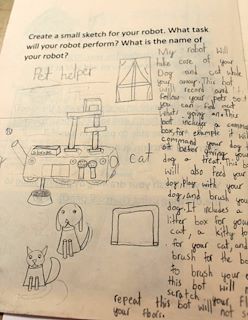 Create a small sketch for your robot. What task
will your robot perform? What is the name of
your robot?
Pet helper
cat
My robot will
take care of your
Dog and cat while
your away. This bot
will record and
follow your pets so
you can find out
whats going on. This
bot includes a command
box, for example it
command your dog
before giving your
dog a treat. This
will also feed your
dog, play with your
dog, and brush your
dog. It includes a
litter box for your
cat, a kitty
for your cat, and
brush for the
to brush your
this bot will
scratch
repeat this bot will
your floors.